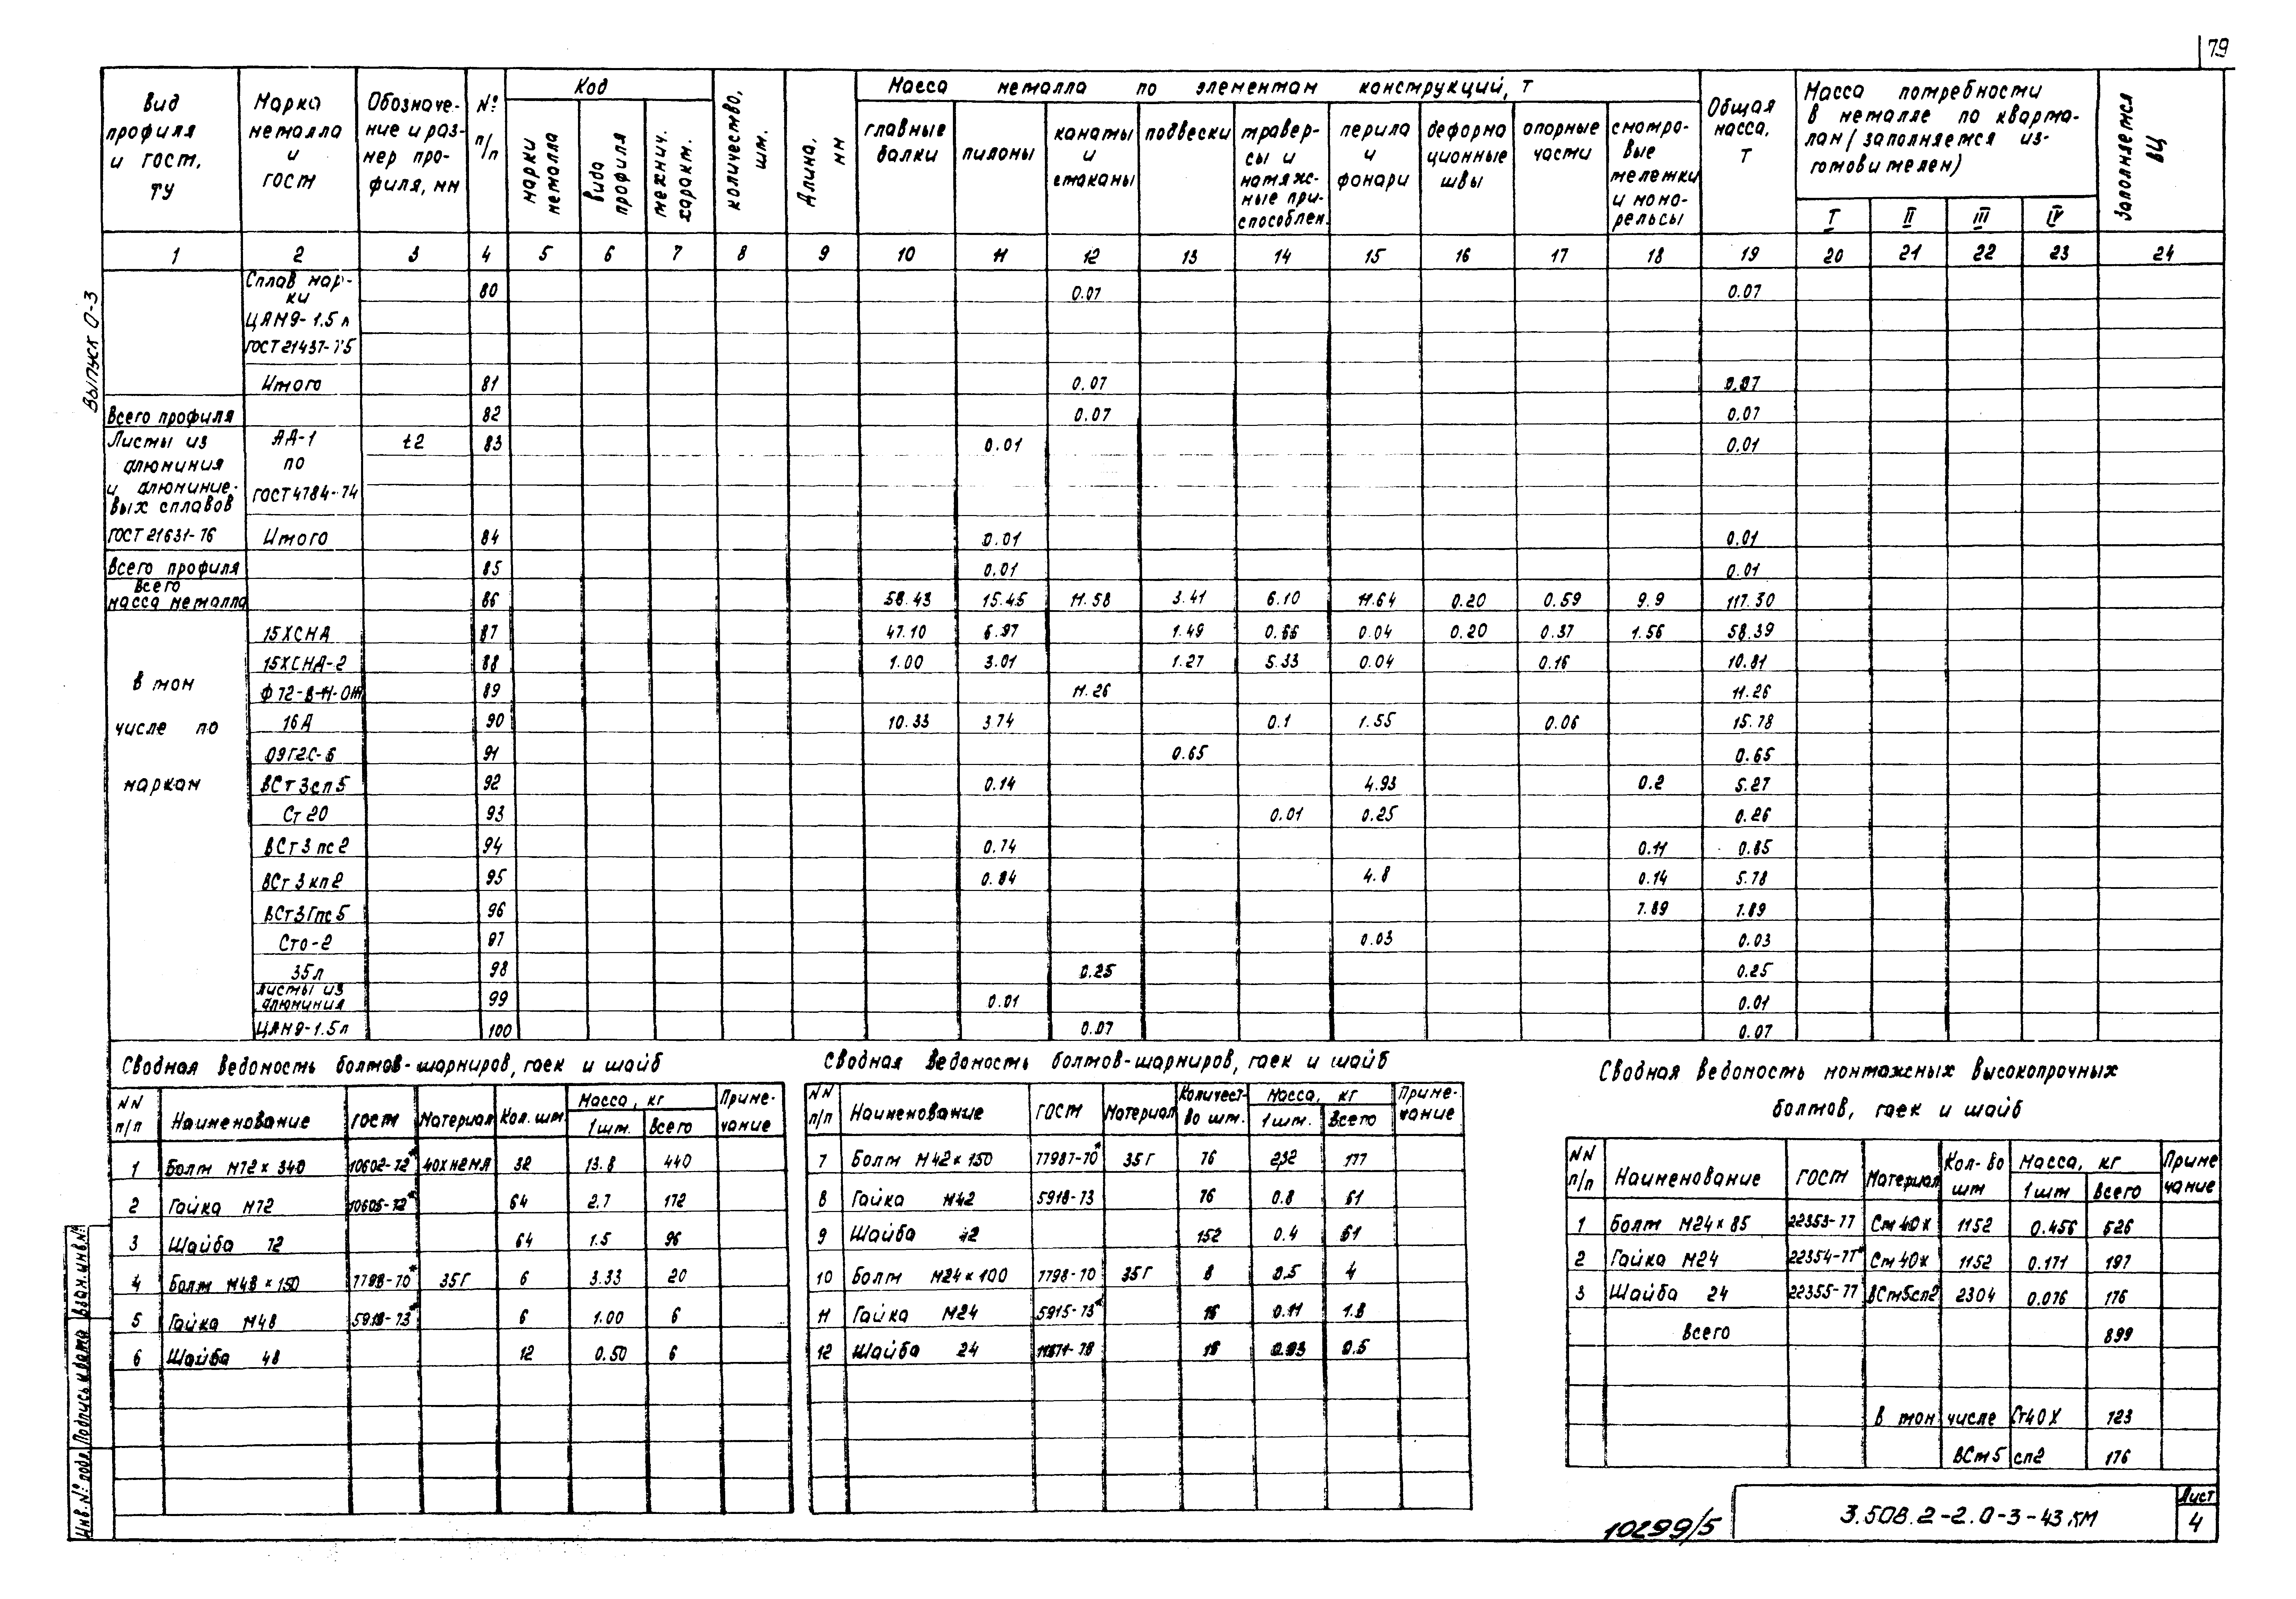 79
Выпуск 0-3
Вид профиля и ГОСТ, ТУ
Марка металла и ГОСТ
Обозначение и размер профиля, мм
№ п/п
Код
марки металла
вида профиля
механич. характ.
количество, шт.
Длина, мм
Масса металла по элементам конструкций, т
главные балки
пилоны
канаты и стаканы
подвески
траверсы и натяжные приспособлен.
перила и фонари
деформационные швы
опорные части
смотровые тележки и монорельсы
Общая масса, т
Масса потребности в металле по кварталам (заполняется изготовителем)
I II III IV
Заполняется ВЦ
1 2 3 4 5 6 7 8 9 10 11 12 13 14 15 16 17 18 19 20 21 22 23 24
Сплав марки 80 0.07 0.07
ЦАМ9-1.5л
ГОСТ 21437-75
Итого 81 0.07 0.07
Всего профиля 82 0.07 0.07
Листы из алюминия и алюминиевых сплавов ГОСТ 21631-76
АД-1 по ГОСТ 4784-74 t2 83 0.01 0.01
Итого 84 0.01 0.01
Всего профиля 85 0.01 0.01
Всего масса металла 86 58.43 15.45 11.58 3.41 6.10 11.64 0.20 0.59 9.9 117.30
в том числе по маркам
15ХСНД 87 47.10 6.97 1.49 0.66 0.04 0.20 0.37 1.56 58.39
15ХСНД-2 88 1.00 3.01 1.27 5.33 0.04 0.16 10.81
Ф72-В-Н-ОЖ 89 11.26 11.26
16Д 90 10.33 3.74 0.1 1.55 0.06 15.78
09Г2С-6 91 0.65 0.65
ВСт3сп5 92 0.14 4.93 0.2 5.27
Ст20 93 0.01 0.25 0.26
ВСт3пс2 94 0.74 0.11 0.85
ВСт3кп2 95 0.84 4.8 0.14 5.78
ВСт3Гпс5 96 7.89 7.89
Сто-2 97 0.03 0.03
35л 98 0.25 0.25
Листы из алюминия 99 0.01 0.01
ЦАМ9-1.5л 100 0.07 0.07
Сводная ведомость болтов-шарниров, гаек и шайб
NN п/п Наименование ГОСТ Материал Кол. шт. Масса, кг 1 шт. Всего Примечание
1 Болт М72×340 10602-72* 40ХН2МА 32 13.8 440
2 Гайка М72 10605-72* 64 2.7 172
3 Шайба 72 64 1.5 96
4 Болт М48×150 7798-70* 35Г 6 3.33 20
5 Гайка М48 5918-73* 6 1.00 6
6 Шайба 48 12 0.50 6
Сводная ведомость болтов-шарниров, гаек и шайб
NN п/п Наименование ГОСТ Материал Количество шт. Масса, кг 1 шт. Всего Примечание
7 Болт М42×150 77987-70* 35Г 76 2.32 177
8 Гайка М42 5918-73 76 0.8 61
9 Шайба 42 152 0.4 61
10 Болт М24×100 7798-70 35Г 8 0.5 4
11 Гайка М24 5915-73* 16 0.11 1.8
12 Шайба 24 11371-78 16 0.03 0.5
Сводная ведомость монтажных высокопрочных
болтов, гаек и шайб
NN п/п Наименование ГОСТ Материал Кол-во шт Масса, кг 1 шт Всего Примечание
1 Болт М24×85 22353-77 Ст40х 1152 0.456 526
2 Гайка М24 22354-77* Ст40х 1152 0.171 197
3 Шайба 24 22355-77 ВСт5сп2 2304 0.076 176
Всего 899
в том числе Ст40Х 723
ВСт5сп2 176
Инв. № подл. Подпись и дата Взам. инв. №
10299/5
3.508.2-2.0-3-43КМ
Лист
4